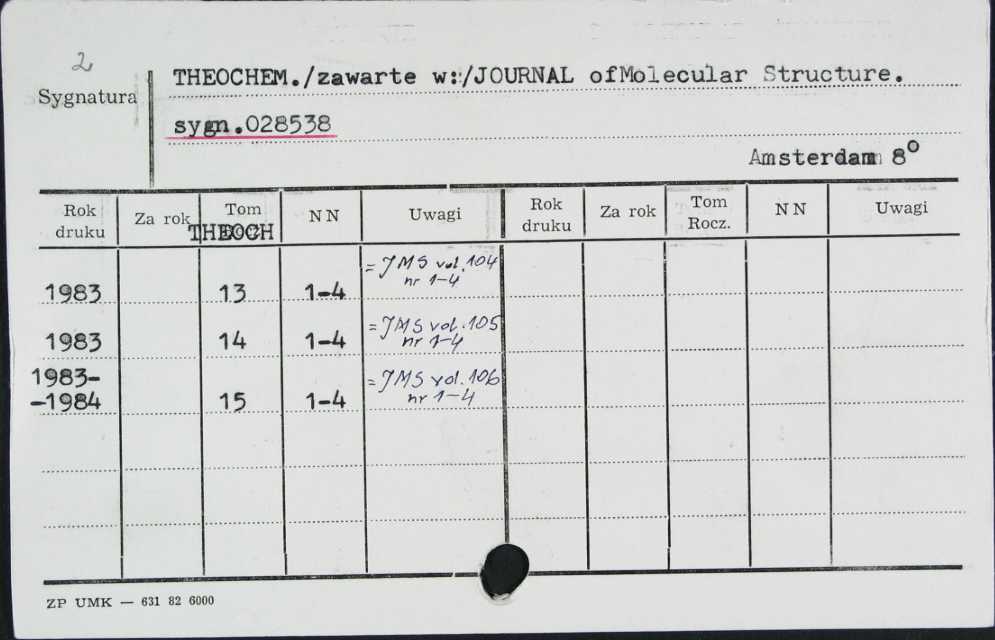 2
Sygnatura
THEOCHEM./zawarte w:/JOURNAL ofMolecular Structure.
sygn.028538
Amsterdam 8º
Rok druku Za rok Tom THEOCH NN Uwagi Rok druku Za rok Tom Rocz. NN Uwagi
1983 13 1-4 = JMS vol.104 nr 1-4
1983 14 1-4 = JMS vol.105 nr 1-4
1983-
-1984 15 1-4 = JMS vol.106 nr 1-4
ZP UMK — 631 82 6000